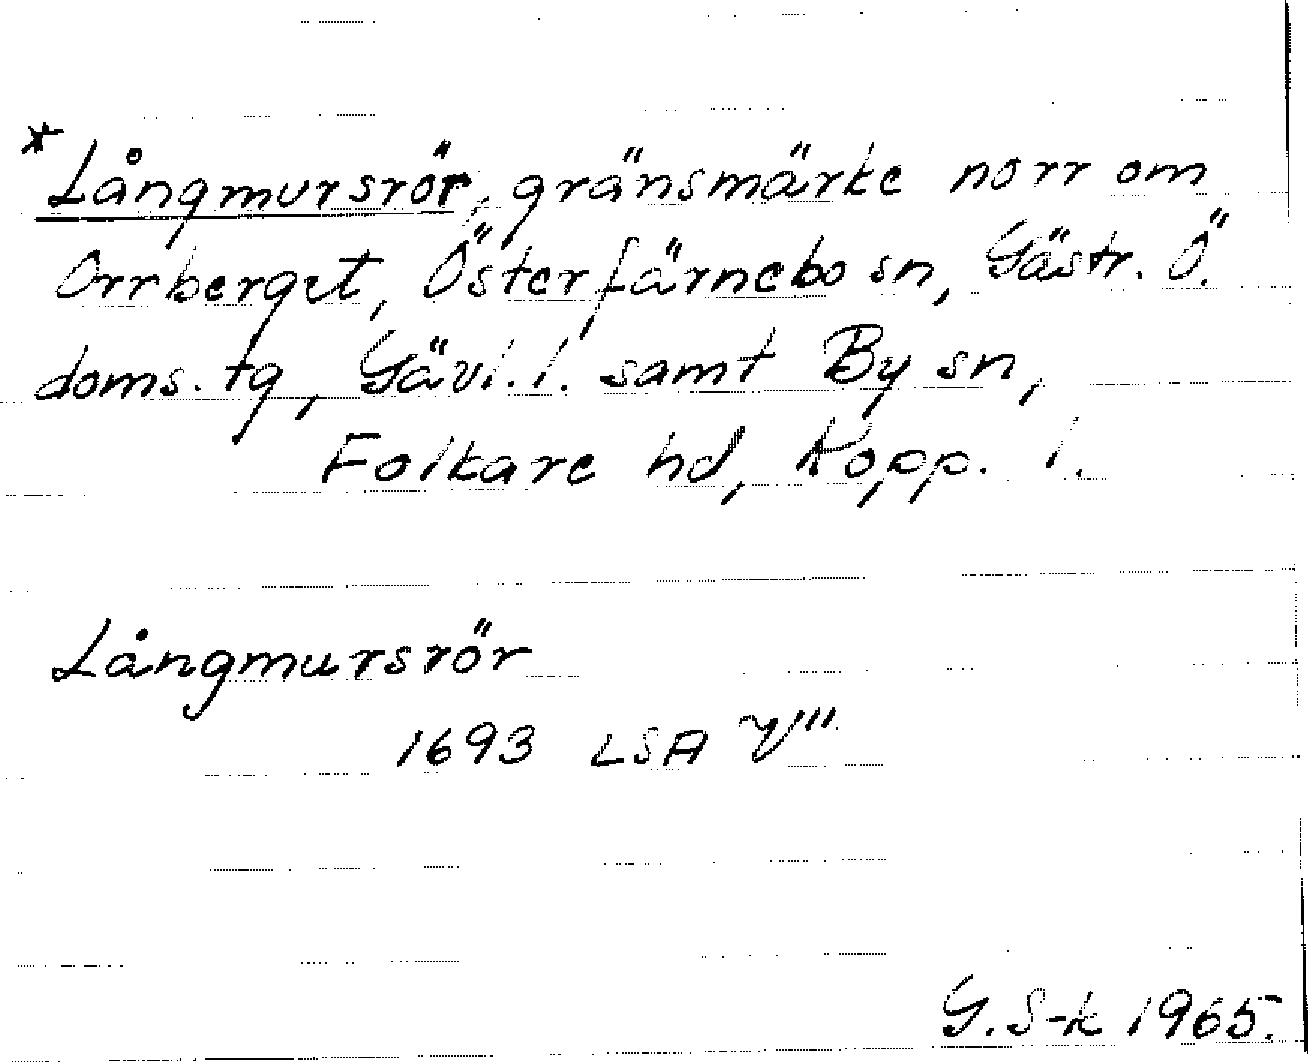 *Långmursrör, gränsmärke norr om
Orrberget, Österfärnebo sn, Gästr. Ö.
doms. tg, Gävl. l. samt By sn,
Folkare hd, Kopp. l.
Långmursrör
1693 LSA V'''
G. S-k 1965.